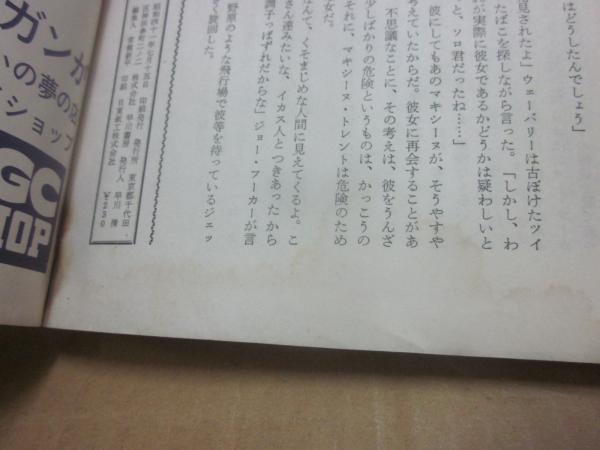 はどうしたんでしょう」
見されたよ」ウェーバリーは古ぼけたツイ
たばこを探しながら言った。「しかし、わ
が実際に彼女であるかどうかは疑わしいと
と、ソロ君だったね……」
彼にしてもあのマキシーヌが、そうやすや
考えていたからだ。彼女に再会することがあ
不思議なことに、その考えは、彼をうんざ
少しばかりの危険というものは、かっこうの
それに、マキシーヌ・トレントは危険のため
女だ。
なんて、くそまじめな人間に見えてくるよ。こ
さん達みたいな、イカス人とつきあったから
調子っぱずれだからな」ジョー・フーカーが言
野原のような飛行場で彼等を待っているジェッ
すく旋回した。
昭和四十一年七月十五日 印刷発行 発行所 東京都千代田
区神田多町二ノ二 株式会社 早川書房 発行人 早川 清
編集人 常盤新平 印刷 日東紙工株式会社 ¥230
ガンガ
いの夢の
ショップ
GC
TOP